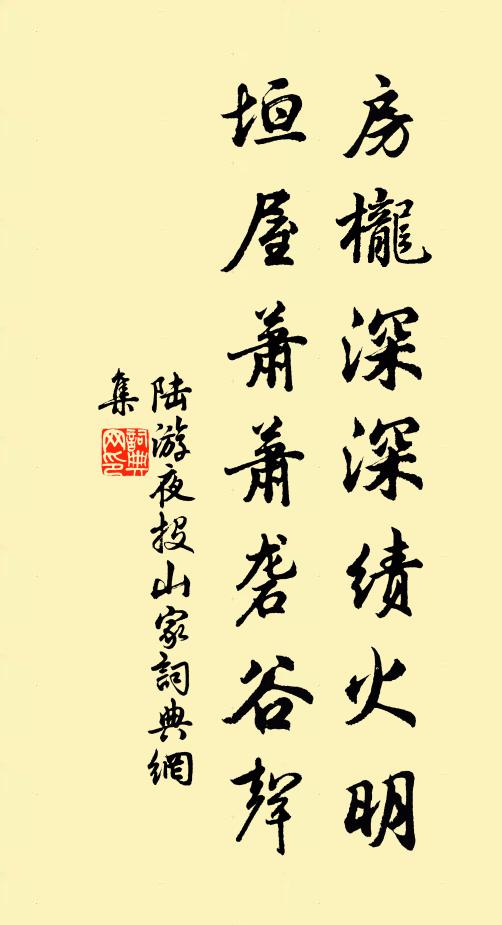 房櫳深深績火明
垣屋蕭蕭砻谷聲
陆游夜投山家詞典網
集
詞典網印